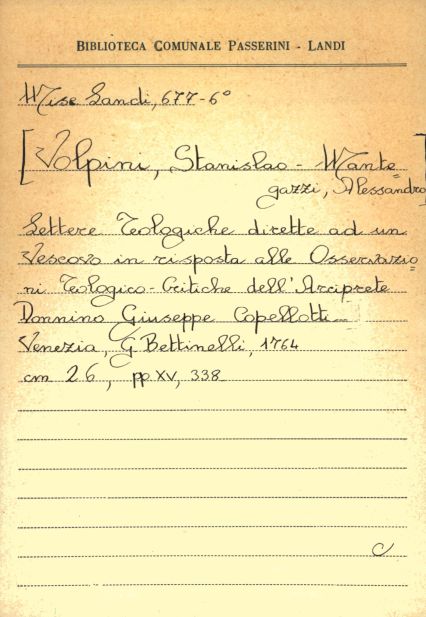 BIBLIOTECA COMUNALE PASSERINI - LANDI
Misc Landi, 677-6°
[Volpini, Stanislao - Mante=
gazzi, Alessandro]
Lettere Teologiche dirette ad un
Vescovo in risposta alle Osservazio=
ni Teologico-Critiche dell'Arciprete
Donnino Giuseppe Copellotti
Venezia, G Bettinelli, 1764
cm 26, pp XV, 338
C